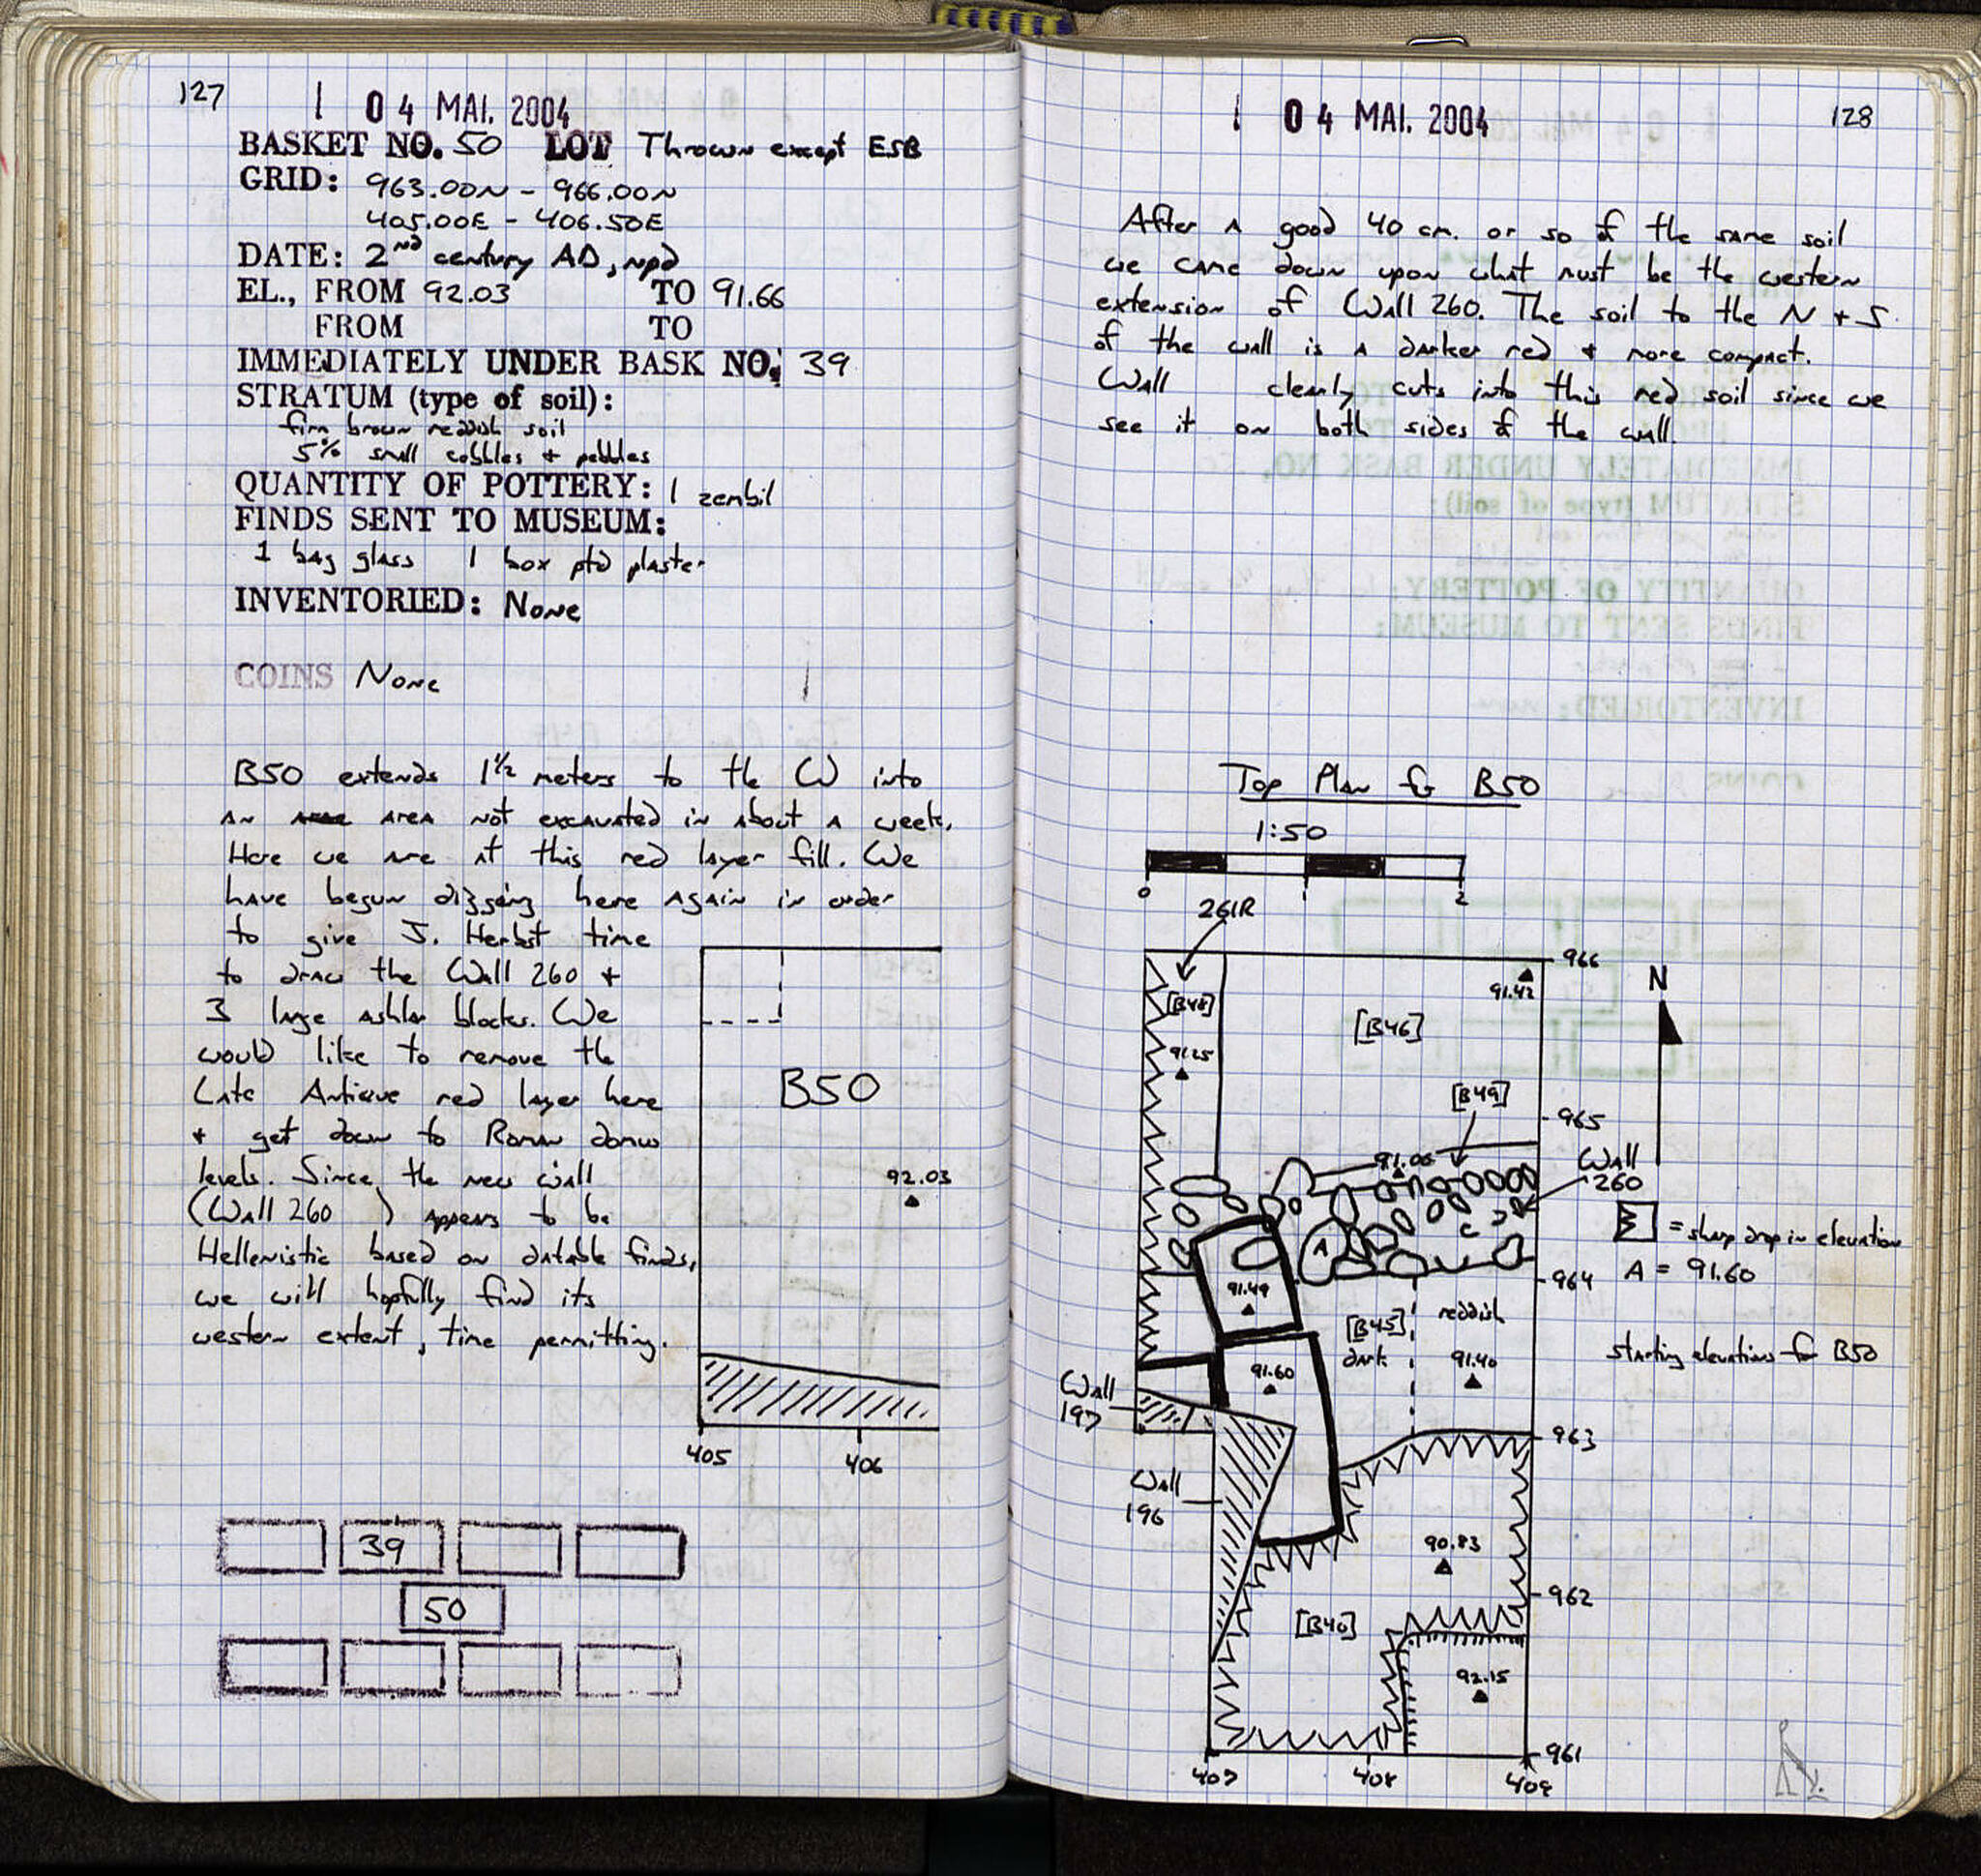 127
1 04 MAI. 2004
BASKET NO. 50 LOT Thrown except ESB
GRID: 963.00N - 966.00N
405.00E - 406.50E
DATE: 2nd century AD, npd
EL., FROM 92.03 TO 91.66
FROM TO
IMMEDIATELY UNDER BASK NO. 39
STRATUM (type of soil):
firm brown reddish soil
5% small cobbles + pebbles
QUANTITY OF POTTERY: 1 zembil
FINDS SENT TO MUSEUM:
1 bag glass 1 box ptd plaster
INVENTORIED: None
COINS None
B50 extends 1½ meters to the W into
an area not excavated in about a week.
Here we are at this red layer fill. We
have begun digging here again in order
to give J. Herbst time
to draw the Wall 260 +
3 large ashlar blocks. We
would like to remove the
Late Antique red layer here
+ get down to Roman domus
levels. Since the new wall
(Wall 260 ) appears to be
Hellenistic based on datable finds,
we will hopfully find its
western extent, time permitting.
B50
92.03
405 406
39
50
1 04 MAI. 2004
128
After a good 40 cm. or so of the same soil
we came down upon what must be the western
extension of Wall 260. The soil to the N + S
of the wall is a darker red + more compact.
Wall clearly cuts into this red soil since we
see it on both sides of the wall.
Top Plan for B50
1:50
0 1 2
261R
966
N
91.42
[B48]
[B46]
91.25
[B49]
965
91.06
Wall
260
= sharp drop in elevation
A
964
A = 91.60
91.49
[B45]
dark
reddish
91.40
starting elevations for B50
91.60
Wall
197
963
Wall
196
90.83
962
[B40]
92.15
961
407 408 409